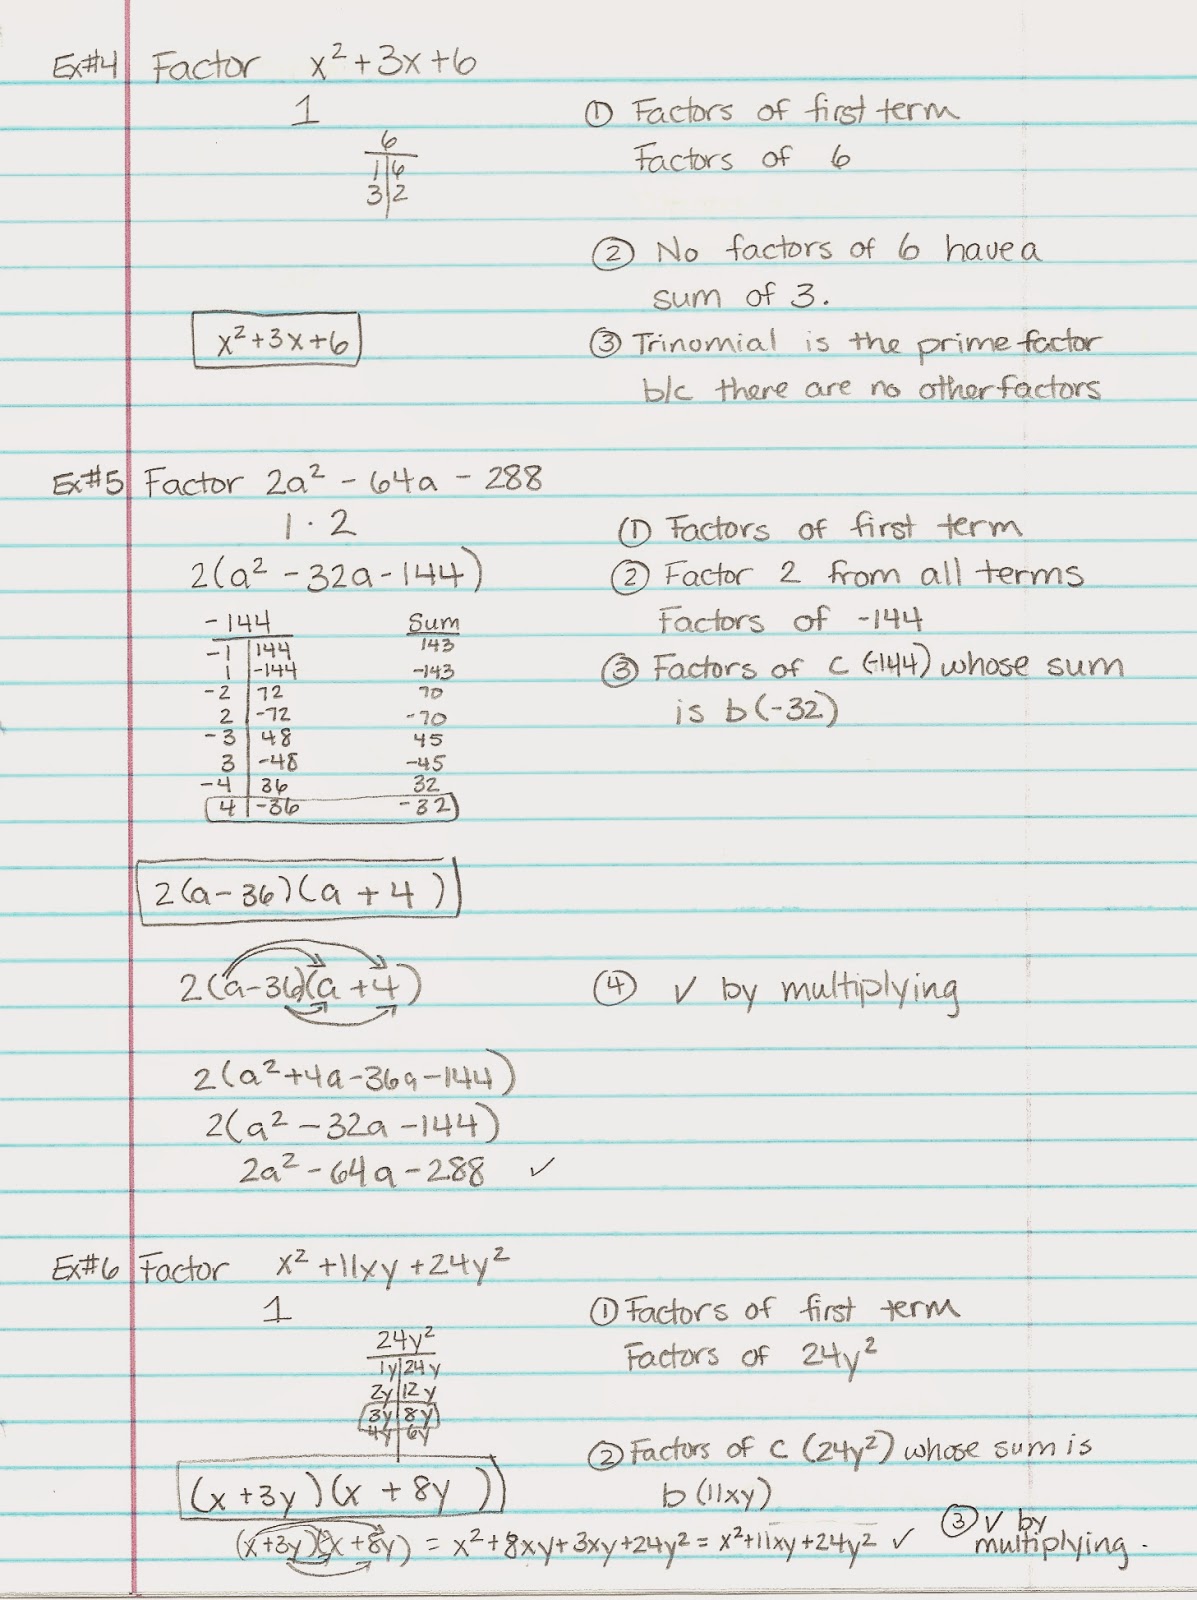 Ex#4 Factor x²+3x+6
1
① Factors of first term
6
Factors of 6
1 | 6
3 | 2
② No factors of 6 have a
sum of 3.
x²+3x+6
③ Trinomial is the prime factor
b/c there are no other factors
Ex#5 Factor 2a² - 64a - 288
1 · 2
① Factors of first term
2(a² - 32a - 144)
② Factor 2 from all terms
Factors of -144
-144 Sum
-1 | 144 143
1 | -144 -143
-2 | 72 70
2 | -72 -70
-3 | 48 45
3 | -48 -45
-4 | 36 32
4 | -36 -32
③ Factors of c (-144) whose sum
is b (-32)
2(a-36)(a + 4)
2(a-36)(a + 4)
④ ✓ by multiplying
2(a²+4a-36a-144)
2(a² - 32a - 144)
2a² - 64a - 288 ✓
Ex#6 Factor x² + 11xy + 24y²
1
① Factors of first term
Factors of 24y²
24y²
1y | 24y
2y | 12y
3y | 8y
4y | 6y
② Factors of c (24y²) whose sum is
b (11xy)
(x + 3y)(x + 8y)
(x+3y)(x+8y) = x²+8xy+3xy+24y² = x²+11xy+24y² ✓
③ ✓ by
multiplying.